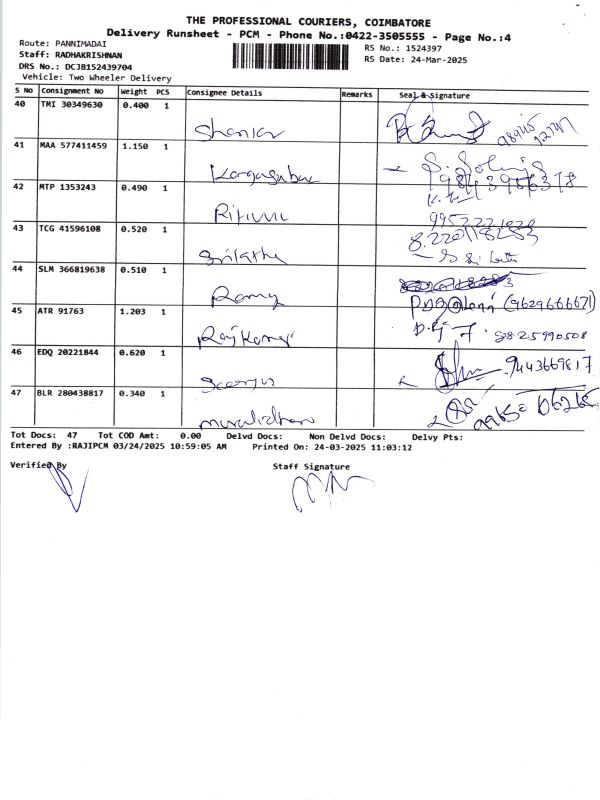 THE PROFESSIONAL COURIERS, COIMBATORE
Delivery Runsheet - PCM - Phone No.:0422-3505555 - Page No.:4
Route: PANNIMADAI RS No.: 1524397
Staff: RADHAKRISHNAN RS Date: 24-Mar-2025
DRS No.: DCJB152439704
Vehicle: Two Wheeler Delivery
S No Consignment No Weight PCS Consignee Details Remarks Seal & Signature
40 TMI 30349630 0.400 1
Shankar
41 MAA 577411459 1.150 1
9843966378
42 MTP 1353243 0.490 1
43 TCG 41596108 0.520 1
8220118283
Srilatha
44 SLM 366819638 0.510 1
Ramy
(9629666671)
45 ATR 91763 1.203 1
Rajkumar
9825990508
46 EDQ 20221844 0.620 1
9443669817
47 BLR 280438817 0.340 1
muralidharan
Tot Docs: 47 Tot COD Amt: 0.00 Delvd Docs: Non Delvd Docs: Delvy Pts:
Entered By :RAJIPCM 03/24/2025 10:59:05 AM Printed On: 24-03-2025 11:03:12
Verified By Staff Signature